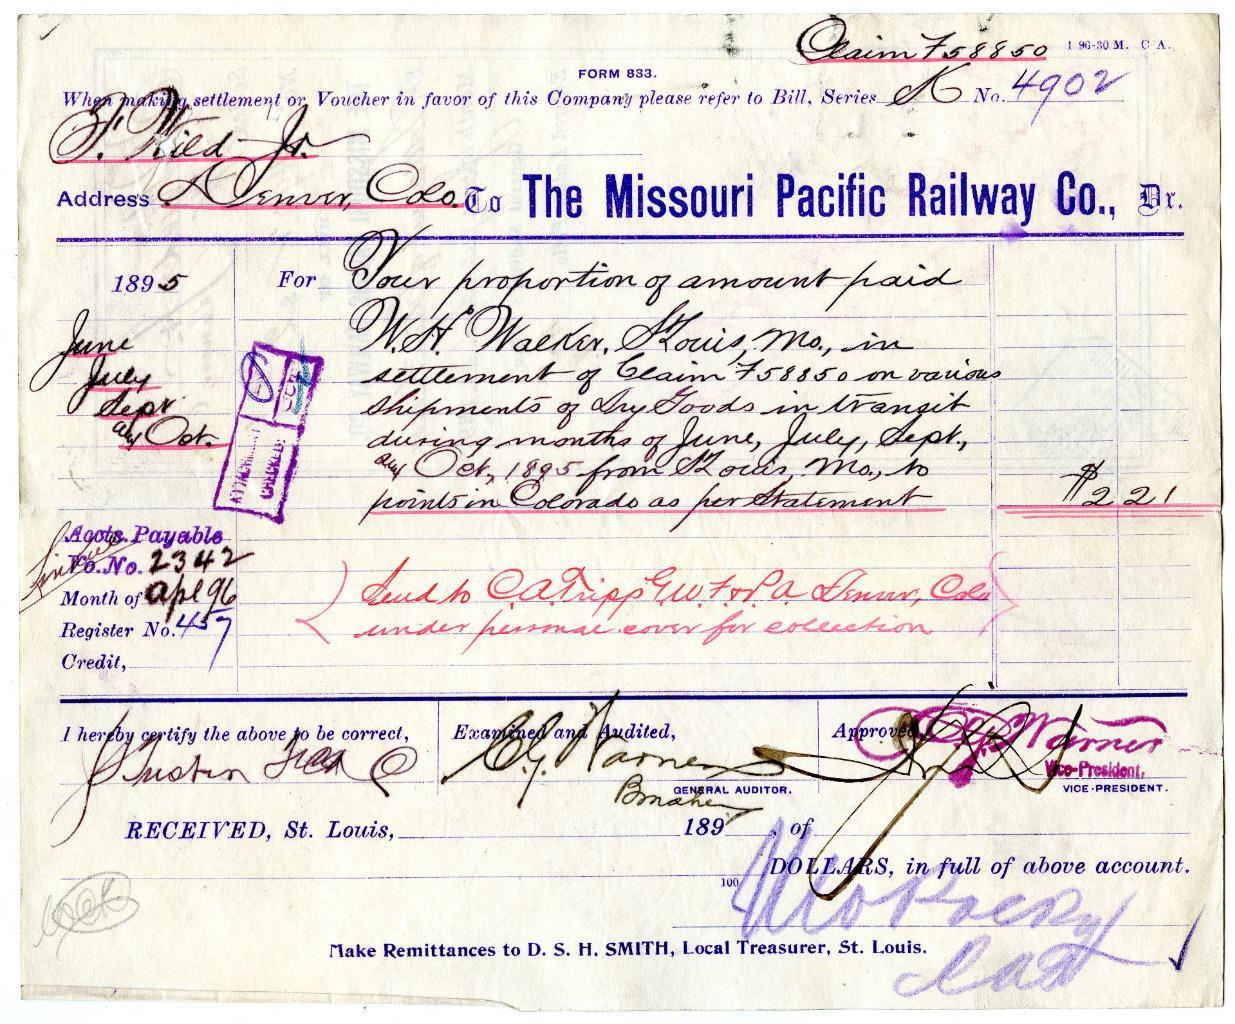 Claim F 58850 1 96-30 M. C A.
FORM 833.
When making settlement or Voucher in favor of this Company please refer to Bill, Series K No. 4902
F. Wild Jr.
Address Denver, Colo. To The Missouri Pacific Railway Co., Dr.
1895 For Your proportion of amount paid
June W. H. Walker, St Louis, Mo., in
July settlement of Claim F 58850 on various
Sept shipments of Dry Goods in transit
and Oct. during months of June, July, Sept.,
and Oct, 1895 from St Louis, Mo., to
points in Colorado as per Statement $2 21
ATTACHMENT CHECKED
OCT
Accts. Payable
Vo. No. 2342
Month of Apl 96
Register No. 457
Credit,
Send to C. A. Tripp G.W.F. & P. A. Denver, Colo
under personal cover for collection
I hereby certify the above to be correct, Examined and Audited, Approved,
Warner Warner
Vice-President.
GENERAL AUDITOR. VICE-PRESIDENT.
RECEIVED, St. Louis, 189 , of
100 DOLLARS, in full of above account.
Make Remittances to D. S. H. SMITH, Local Treasurer, St. Louis.